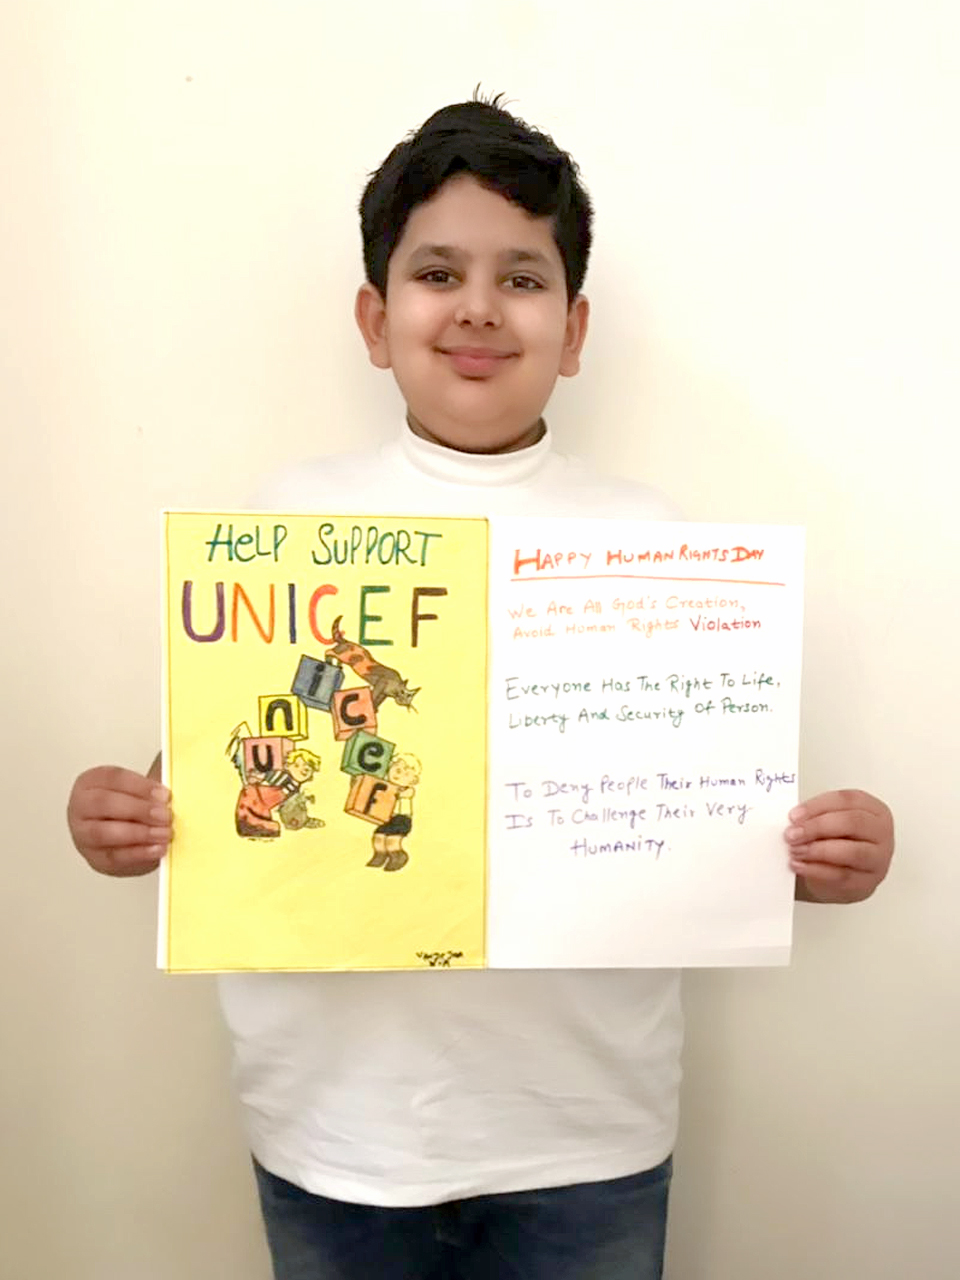 HELP SUPPORT
UNICEF
i
n c
u e
f
HAPPY HUMAN RIGHTS DAY
We Are All God's Creation,
Avoid Human Rights Violation
Everyone Has The Right To Life,
Liberty And Security Of Person.
To Deny People Their Human Rights
Is To Challenge Their Very
HUMANITY.